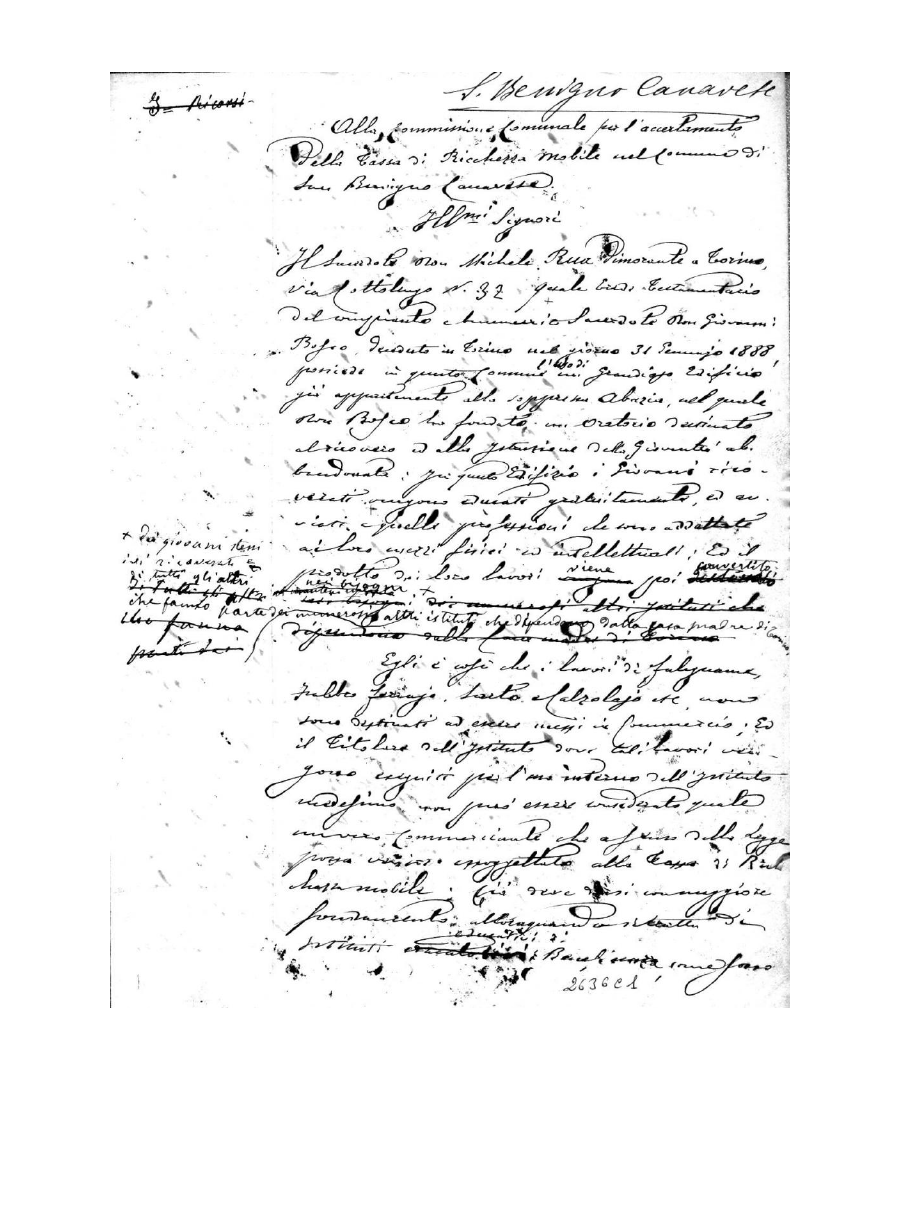 S. Benigno Canavese
3= Ricorsi
Alla Commissione Comunale per l'accertamento
Della Tassa di Ricchezza mobile nel Comune di
San Benigno Canavese.
Ill.mi Signori
Il Sacerdote Don Michele Rua Dimorante a Torino,
via Cottolengo N. 32 quale Erede Testamentario
del compianto Sacerdote Don Giovanni
Bosco, deceduto in Torino nel giorno 31 Gennajo 1888,
l'uso di
possiede in questo Comune un Grandioso Edificio
già appartenente alla soppressa Abazia, nel quale
Don Bosco ha fondato un Oratorio destinato
al ricovero ed alla Istruzione della Gioventù ab-
bandonata: In questo Edifizio i Giovani rico-
verati vengono educati gratuitamente, ed av-
viati a quelle professioni che sono addattate
ai loro mezzi fisici ed intellettuali; Ed il
viene convertito
prodotto dei loro lavori poi
nei bisogni +
+ dei giovani stessi
ivi ricoverati e
di tutti gli altri
che fanno parte dei numerosi altri istituti che dipendono dalla casa madre di Torino
nei bisogni dei numerosi altri Istituti che
dipendono dalla Casa madre di Torino
che fanno
parte dei
Egli è così che i lavori di falegname,
Fabbro ferrajo, Sarto e Calzolajo etc, non
sono destinati ad essere messi in Commercio; Ed
il Titolare dell'Istituto dove tali lavori ven-
gono eseguiti per l'uso interno dell'Istituto
medesimo non può essere considerato quale
un vero Commerciante che a senso della Legge
possa venire assoggettato alla Tassa di Ric-
chezza mobile. Ciò deve dirsi con maggiore
fondamento allorquando si tratta di
educativi e di
Istituti Beneficenza come sono
2636C1